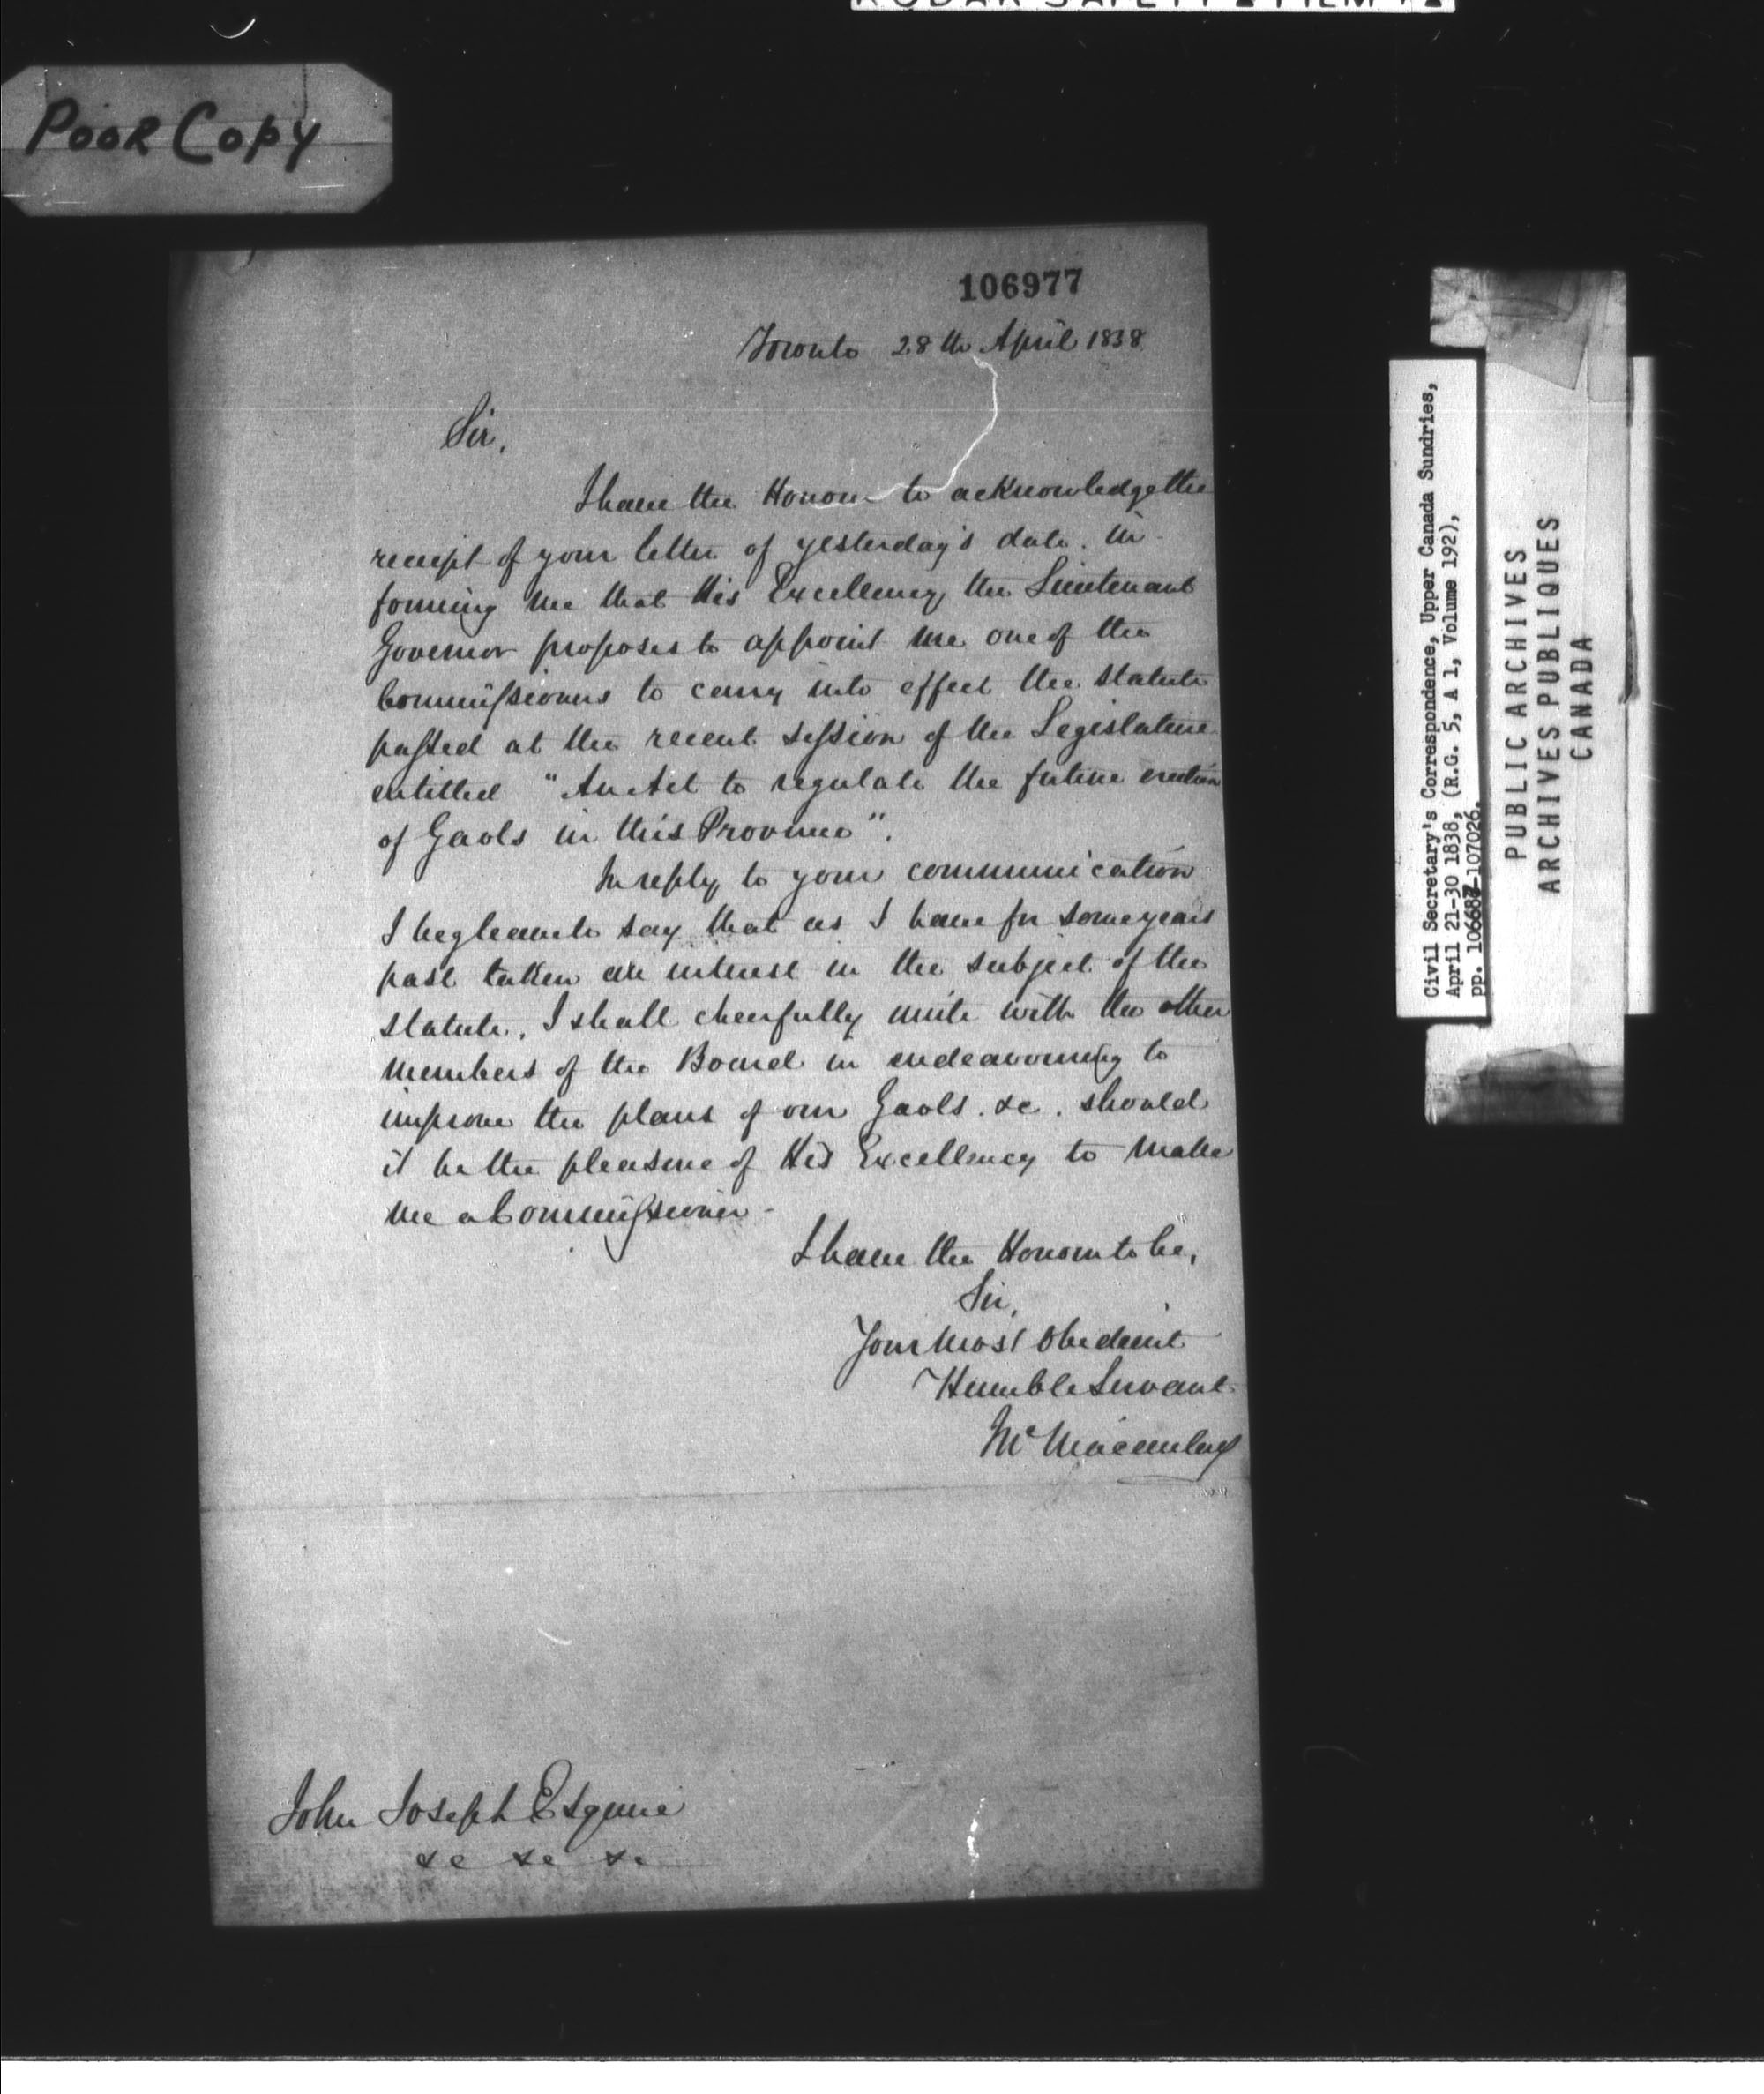 KODAK SAFETY FILM
POOR COPY
106977
Toronto 28th April 1838
Sir,
I have the Honour to acknowledge the
receipt of your letter of yesterday's date. in-
forming me that His Excellency the Lieutenant
Governor proposes to appoint me one of the
Commissioners to carry into effect the statute
passed at the recent session of the Legislature
entitled "An Act to regulate the future erection
of Gaols in this Province".
In reply to your communication
I beg leave to say that as I have for some years
past taken an interest in the subject of the
statute, I shall cheerfully unite with the other
members of the Board in endeavouring to
improve the plans of our Gaols. &c. should
it be the pleasure of His Excellency to make
me a Commissioner -
I have the Honour to be,
Sir,
Your Most Obedient
Humble Servant
Macaulay
John Joseph Esquire
&c &c &c
Civil Secretary's Correspondence, Upper Canada Sundries,
April 21-30 1838, (R.G. 5, A 1, Volume 192),
pp. -107026.
PUBLIC ARCHIVES
ARCHIVES PUBLIQUES
CANADA